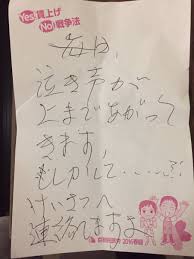 Yes 賃上げ
No! 戦争法
毎日、
泣き声が
上まであがって
きます。
もしかして・・・・!?
けいさつへ
連絡しますよ
2016春闘